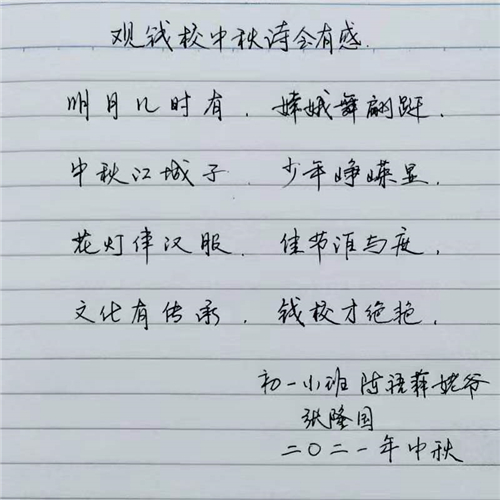 观钱校中秋诗会有感.
明月几时有. 嫦娥舞翩跹.
中秋江城子. 少年峥嵘显.
花灯伴汉服. 佳节淮与度.
文化有传承. 钱校才绝艳.
初一小班 陈语菲姥爷
张隆国
二〇二一年中秋